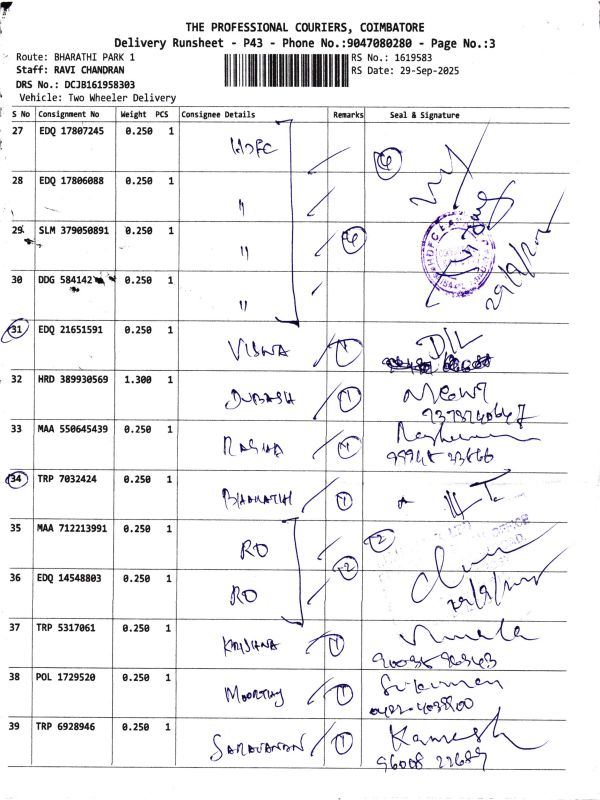 THE PROFESSIONAL COURIERS, COIMBATORE
Delivery Runsheet - P43 - Phone No.:9047080280 - Page No.:3
Route: BHARATHI PARK 1 RS No.: 1619583
Staff: RAVI CHANDRAN RS Date: 29-Sep-2025
DRS No.: DCJB161958303
Vehicle: Two Wheeler Delivery
S No Consignment No Weight PCS Consignee Details Remarks Seal & Signature
27 EDQ 17807245 0.250 1 HDFC
28 EDQ 17806088 0.250 1 "
29 SLM 379050891 0.250 1 "
30 DDG 584142 0.250 1 " 29/9/2025
31 EDQ 21651591 0.250 1 VISWA 1 D/L
32 HRD 389930569 1.300 1 1
33 MAA 550645439 0.250 1 1
34 TRP 7032424 0.250 1 BHARATHI 1
35 MAA 712213991 0.250 1 RO 2
36 EDQ 14548803 0.250 1 RO 29/9/2025
37 TRP 5317061 0.250 1 KRISHNA 1
38 POL 1729520 0.250 1 MOORTHY 1
39 TRP 6928946 0.250 1 SARAVANAN 1 Kamesh